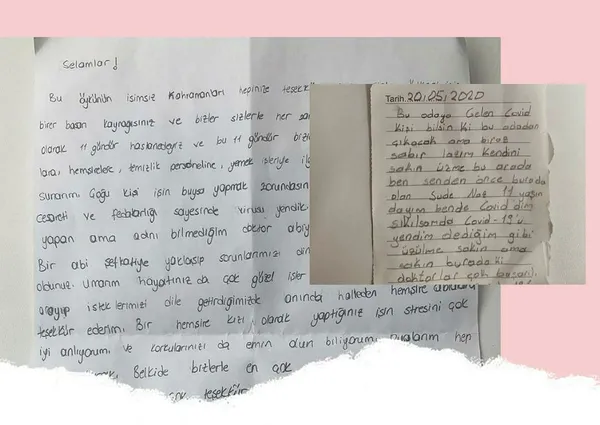 Selamlar!
Bu öykünün isimsiz kahramanları hepinize teşekk
birer başarı kaynağısınız ve bizler sizlerle her
olarak 11 gündür hastanedeyiz ve bu 11 gündür bizl
lara, hemşirelere, temizlik personeline, yemek
sunarım. Çoğu kişi işin buysa yapmak zorundasın
cesareti ve fedakarlığı sayesinde virüsü yendik.
yapan ama adını bilmediğim doktor abiy
Bir abi şefkatiyle yaklaşıp sorunlarımızı din
oldunuz. Umarım hayatınızda çok güzel işler
arayıp isteklerimizi dile getirdiğimizde anında halleden hemşire ablalara
teşekkür ederim. Bir hemşire kızı olarak yaptığınız işin stresini çok
iyi anlıyorum ve korkularınızı da emin olun biliyorum. Dualarım hep
Belkide bizlerle en çok
teşekkür
Tarih: 20.05.2020
Bu odaya Gelen Covid
kişi bilsin ki bu odadan
çıkacak ama biraz
sabır lazım kendini
sakın üzme bu arada
ben senden önce burada
olan Sude Naz 11 yaşın
dayım bende Covid dim
sıkılsamda Covid-19'u
yendim dediğim gibi
üzülme sakın ama
sakın buradaki
doktorlar çok başarıl